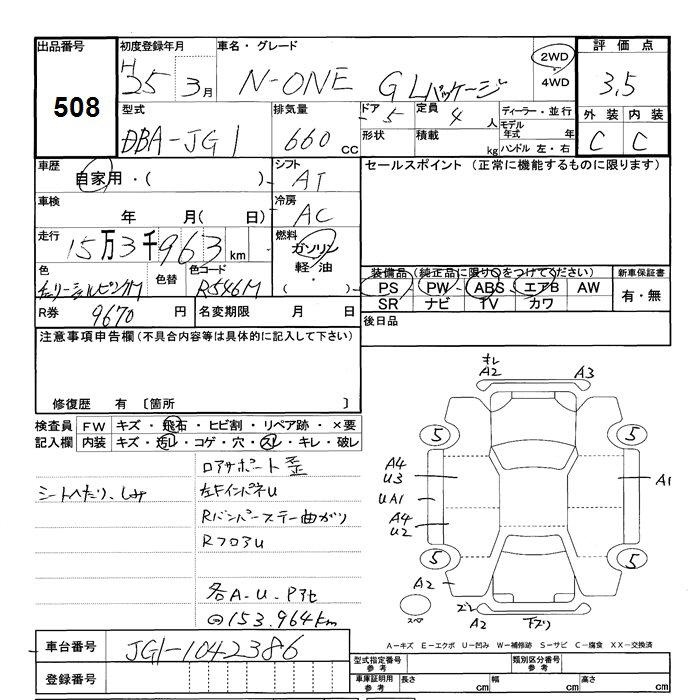 出品番号 初度登録年月 車名・グレード 評価点
508 H25 3月 N-ONE GLパッケージ 2WD 4WD 3.5
型式 排気量 ドア 5 定員 4人 ディーラー・並行 外装 内装
DBA-JG1 660 cc 形状 積載 kg モデル年式 年 ハンドル 左・右 C C
車歴 自家用・( ) シフト AT セールスポイント (正常に機能するものに限ります)
車検 年 月( 日) 冷房 AC
走行 15万3千963km 燃料 ガソリン 軽・油 ・( )
色 色替 色コード R546M 装備品(純正品に限り○をつけてください) 新車保証書
PS PW ABS エアB AW 有・無
SR ナビ TV カワ
R券 9670円 名変期限 月 日 後日品
注意事項申告欄(不具合内容等は具体的に記入して下さい)
修復歴 有 〔箇所 〕
検査員 FW キズ・飛石・ヒビ割・リペア跡・×要
記入欄 内装 キズ・汚レ・コゲ・穴・スレ・キレ・破レ
シートへたり、しみ
ロアサポート歪
左FインパネU
Rバンパーステー曲がり
RフロアU
各A-U-P他
153.964km
オレ
A2 A3
5 5
A4
U3 A1
UA1
A4
U2
5 5
A2
ズレ
A2 下ズリ
スペア
A-キズ E-エクボ U-凹み W-補修跡 S-サビ C-腐食 XX-交換済
車台番号 JG1-1042386 型式指定番号 参考 類別区分番号 参考
登録番号 車庫証明用 参考 長さ cm 幅 cm 高さ cm